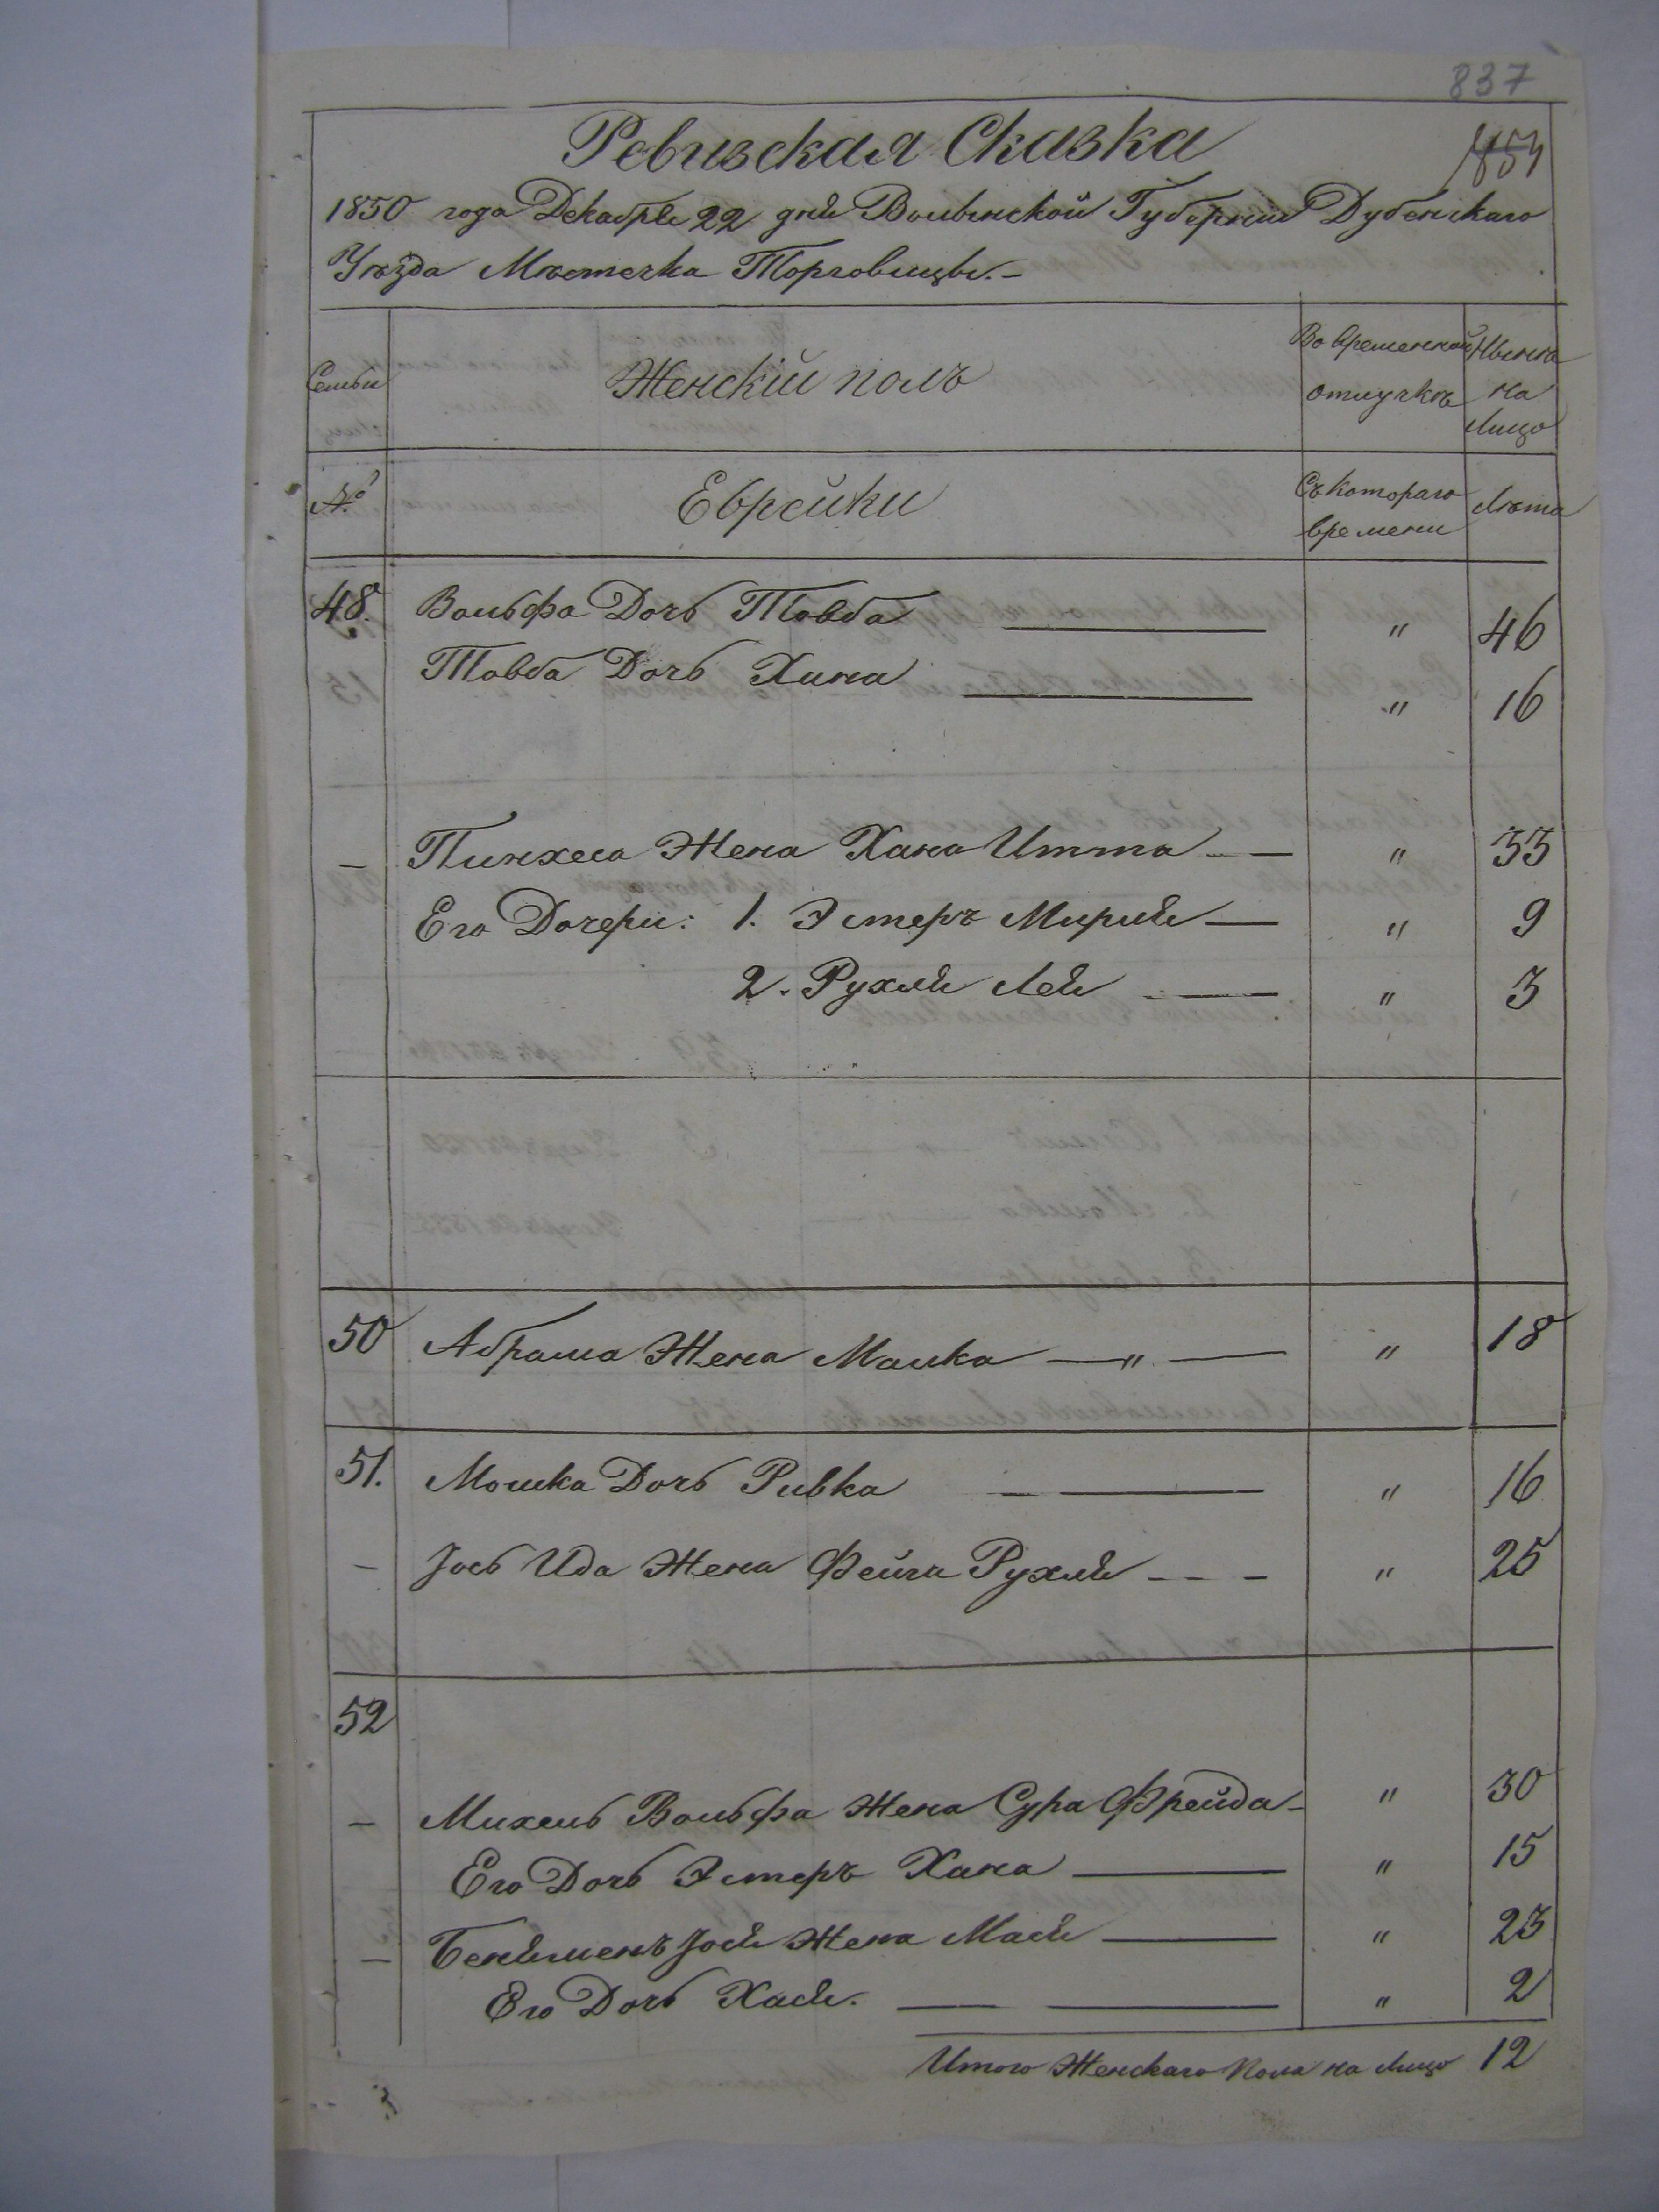 837
Ревизская Сказка
1850 года Декабря 22 дня Волынской Губернии Дубенскаго
Уѣзда Мѣстечка Торговицы.-
Семьи
Женскій полъ
Во временной отлучкѣ
Нынѣ на лицо
№
Еврейки
Съ котораго времени
Лѣта
48. Вольфа Дочь Товба — " 46
Товба Дочь Хана — " 16
— Пинхеса Жена Хана Итта — " 33
Его Дочери: 1. Эстеръ Мирия — " 9
2. Рухля Лея — " 3
50 Абрама Жена Малка — " — " 18
51. Мошка Дочь Ривка — — " 16
— Іось Ида Жена Фейга Рухля — — — " 25
52
— Михель Вольфа Жена Сура Фрейда — " 30
Его Дочь Эстеръ Хана — " 15
— Беняменъ Іося Жена Мася — " 23
Его Дочь Хася. — — " 2
Итого Женскаго Пола на Лицо 12